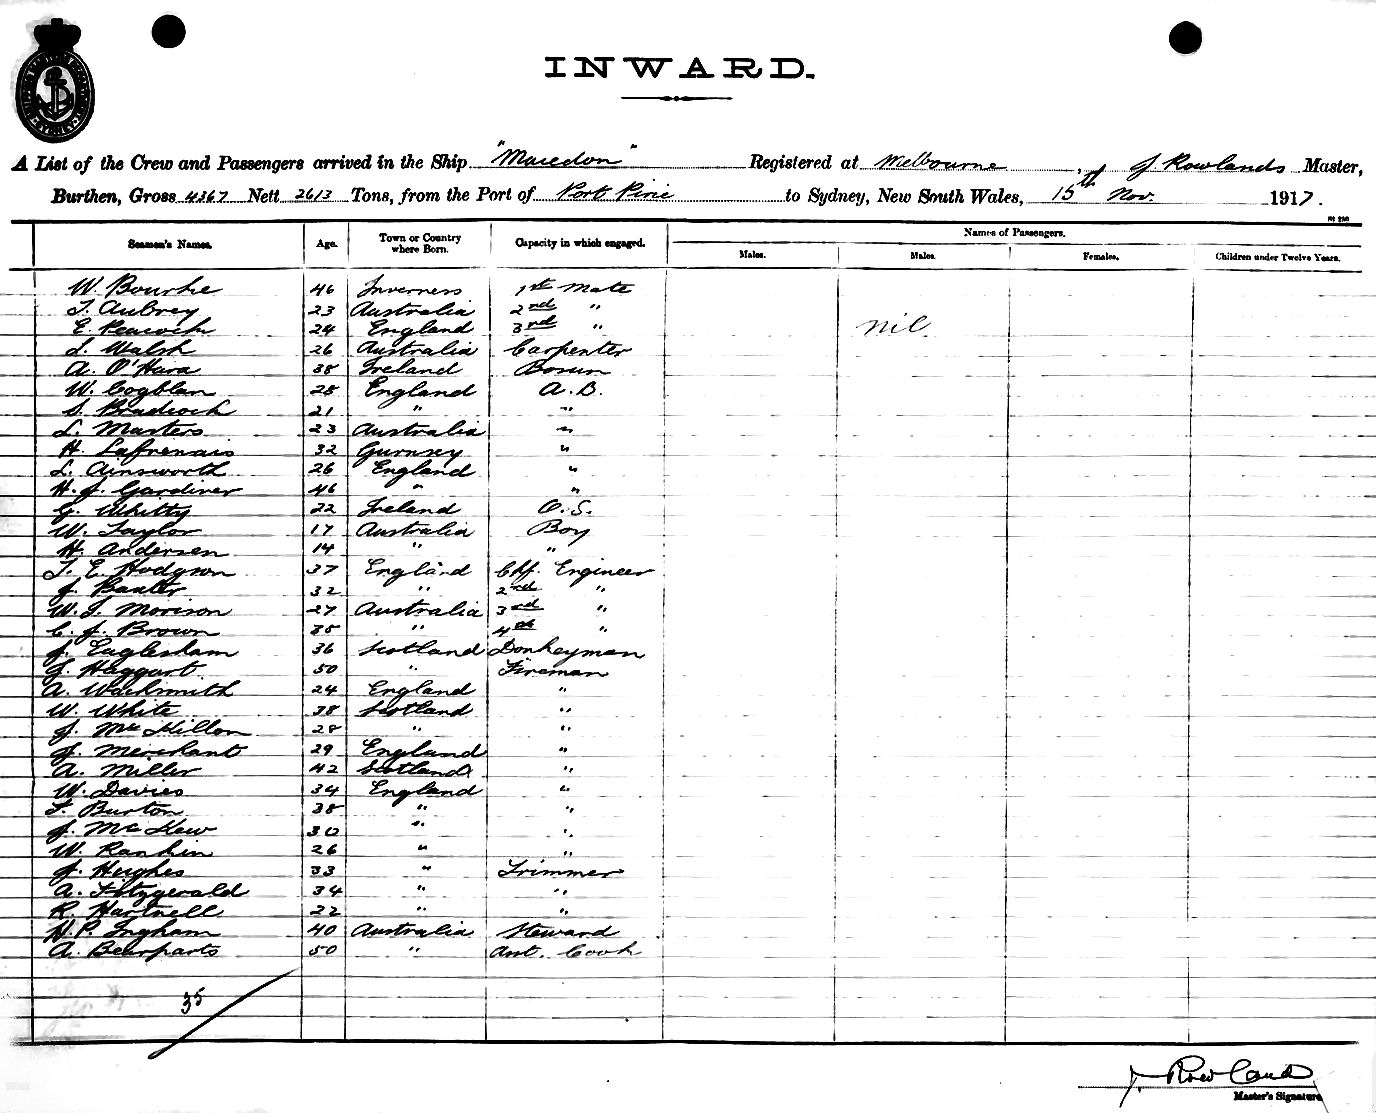 INWARD.
A List of the Crew and Passengers arrived in the Ship "Macedon" Registered at Melbourne, of J. Rowlands Master,
Burthen, Gross 4367 Nett 2613 Tons, from the Port of Port Pirie to Sydney, New South Wales, 15th Nov. 1917.
Names of Passengers.
Seamen's Names. Age. Town or Country where Born. Capacity in which engaged. Males. Males. Females. Children under Twelve Years.
W. Bourke 46 Inverness 1st Mate
T. Aubrey 23 Australia 2nd "
E. Peacock 24 England 3rd " nil.
L. Walsh 26 Australia Carpenter
A. O'Hara 38 Ireland Bosun
W. Cogblan 28 England A.B.
S. Bradcock 21 " "
L. Masters 23 Australia "
H. Lafrenais 32 Gurnsey "
L. Ainsworth 26 England "
H. J. Gardiner 46 " "
G. Whitty 22 Ireland O.S.
W. Taylor 17 Australia Boy
H. Andersen 14 " "
T. E. Hodgson 37 England Chf. Engineer
J. Baxter 32 " 2nd "
W. T. Morison 27 Australia 3rd "
C. J. Brown 38 " 4th "
J. Eaglesham 36 Scotland Donkeyman
J. Haggart. 50 " Fireman
A. Wacksmith 24 England "
W. White 38 Scotland "
J. McKillon 28 " "
J. Merchant 29 England "
A. Miller 42 Scotland "
W. Davies 34 England "
F. Burton 38 " "
J. McKew 30 " "
W. Rankin 26 " "
J. Hughes 33 " Trimmer
A. Fitzgerald 34 " "
R. Hartnell 22 " "
H. P. Ingham 40 Australia Steward
A. Bearparts 50 " Asst. Cook
35
J. Rowland
Master's Signature